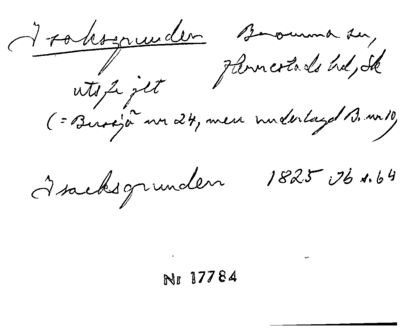 Isaksgrunden Brömma sn,
Herrestads hd, Sk
utsj. jlt
(= Bussjö nr 24, men underlagd B. nr 10)
Isacksgrunden 1825 Jb s. 64
Nr 17784